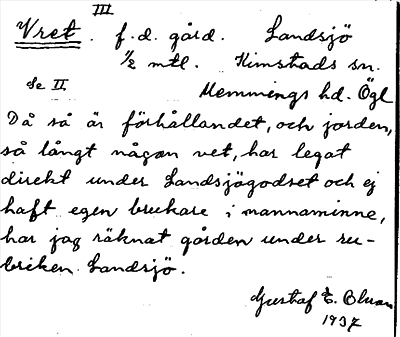 III
Vret. f.d. gård. Landsjö
1/2 mtl. Kimstads sn.
Se II. Memmings hd. Ögl
Då så är förhållandet, och jorden,
så långt någon vet, har legat
direkt under Landsjögodset och ej
haft egen brukare i mannaminne,
har jag räknat gården under ru-
briken Landsjö.
Gustaf E. Bluan
1937